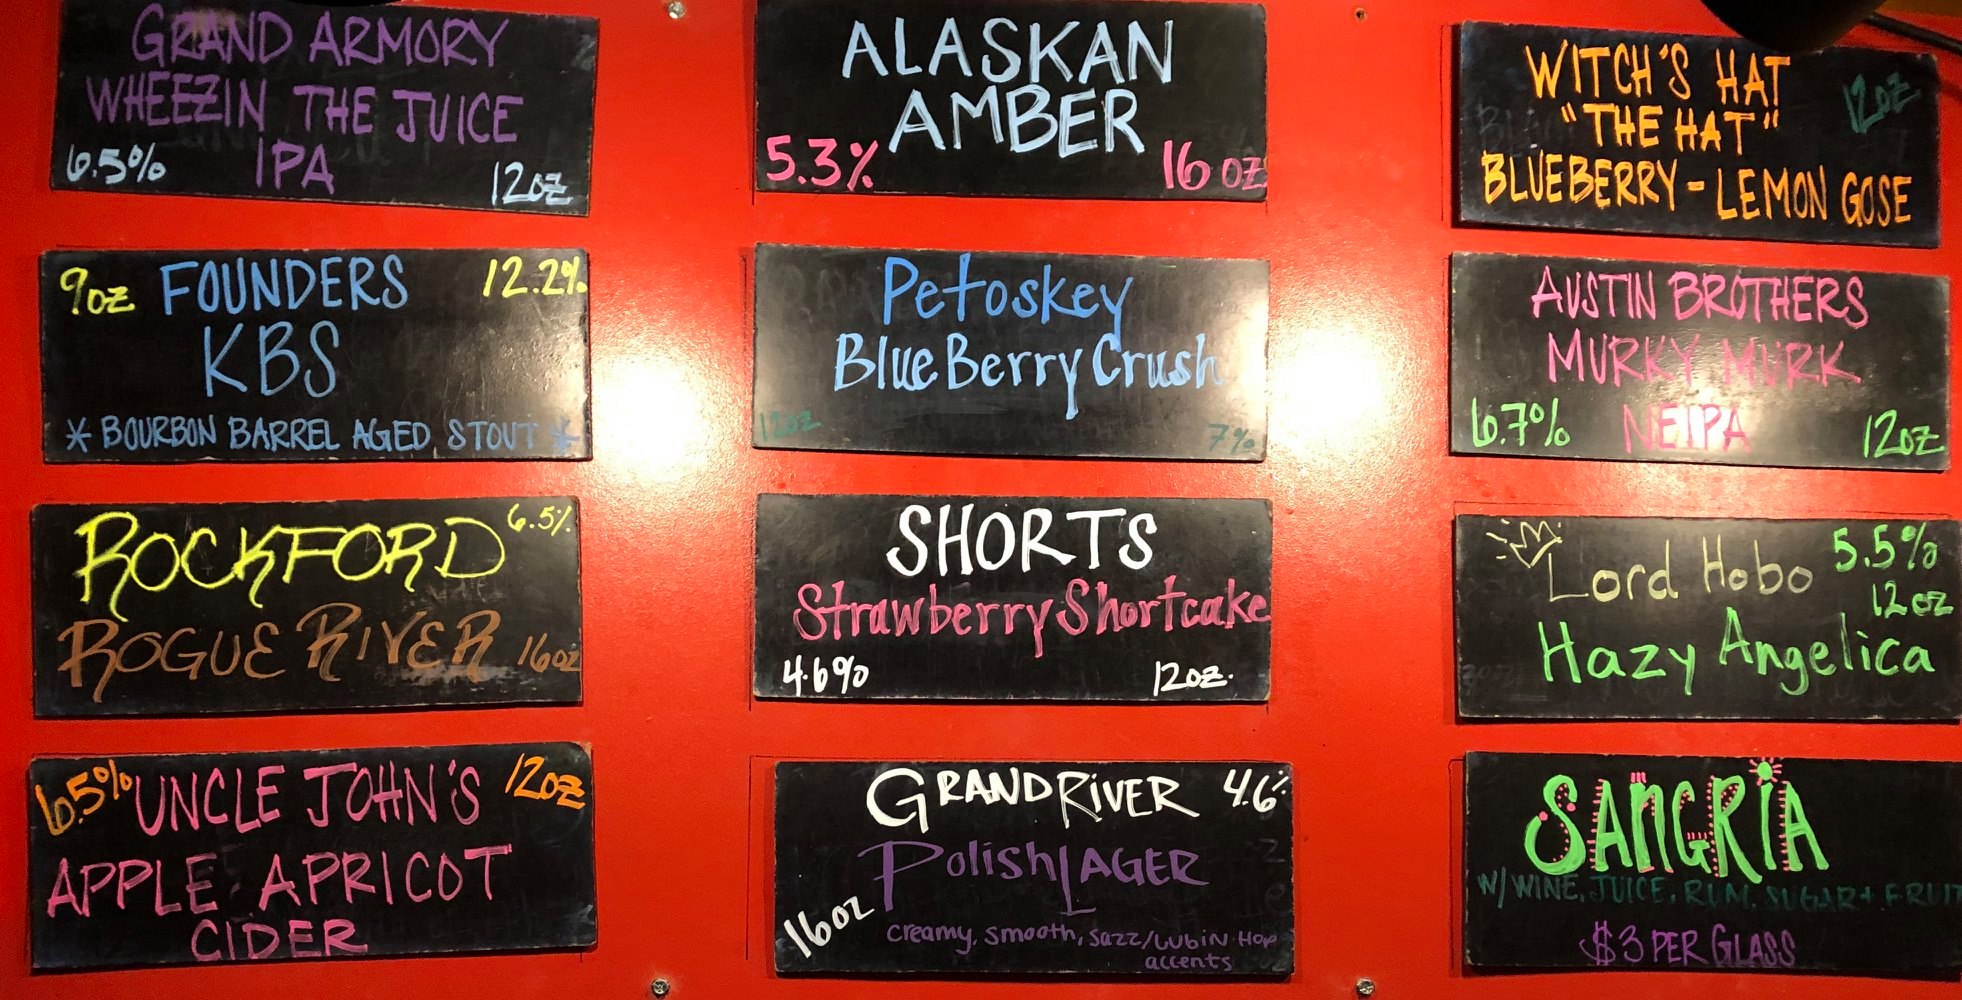 GRAND ARMORY
WHEEZIN THE JUICE
IPA
6.5%
12oz
ALASKAN
AMBER
5.3%
16 oz
WITCH'S HAT
"THE HAT"
12oz
BLUEBERRY - LEMON GOSE
9oz
FOUNDERS
12.2%
KBS
* BOURBON BARREL AGED STOUT *
Petoskey
BlueBerry Crush
12oz
7%
AUSTIN BROTHERS
MURKY MURK
NEIPA
6.7%
12oz
ROCKFORD
6.5%
ROGUE RIVER
16oz
SHORTS
Strawberry Shortcake
4.6%
12oz.
Lord Hobo
5.5%
12oz
Hazy Angelica
6.5%
UNCLE JOHN'S
12oz
APPLE APRICOT
CIDER
GRAND RIVER
4.6%
Polish LAGER
16oz
creamy, smooth, sazz/lubin hop
accents
SANGRIA
W/ WINE, JUICE, RUM, SUGAR + FRUIT
$3 PER GLASS